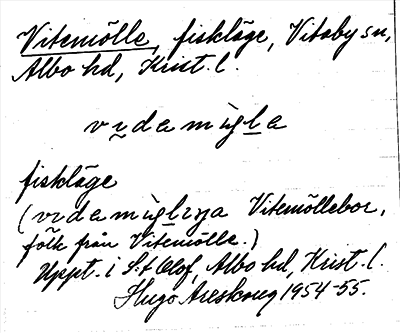 Vitemölle, fiskläge, Vitaby sn,
Albo hd, Krist. l.
vıdamùgla
fiskläge
(vıdamùglıŋa Vitemöllebor,
folk från Vitemölle.)
Uppt. i S:t Olof, Albo hd, Krist. l.
Hugo Areskoug 1954-55.